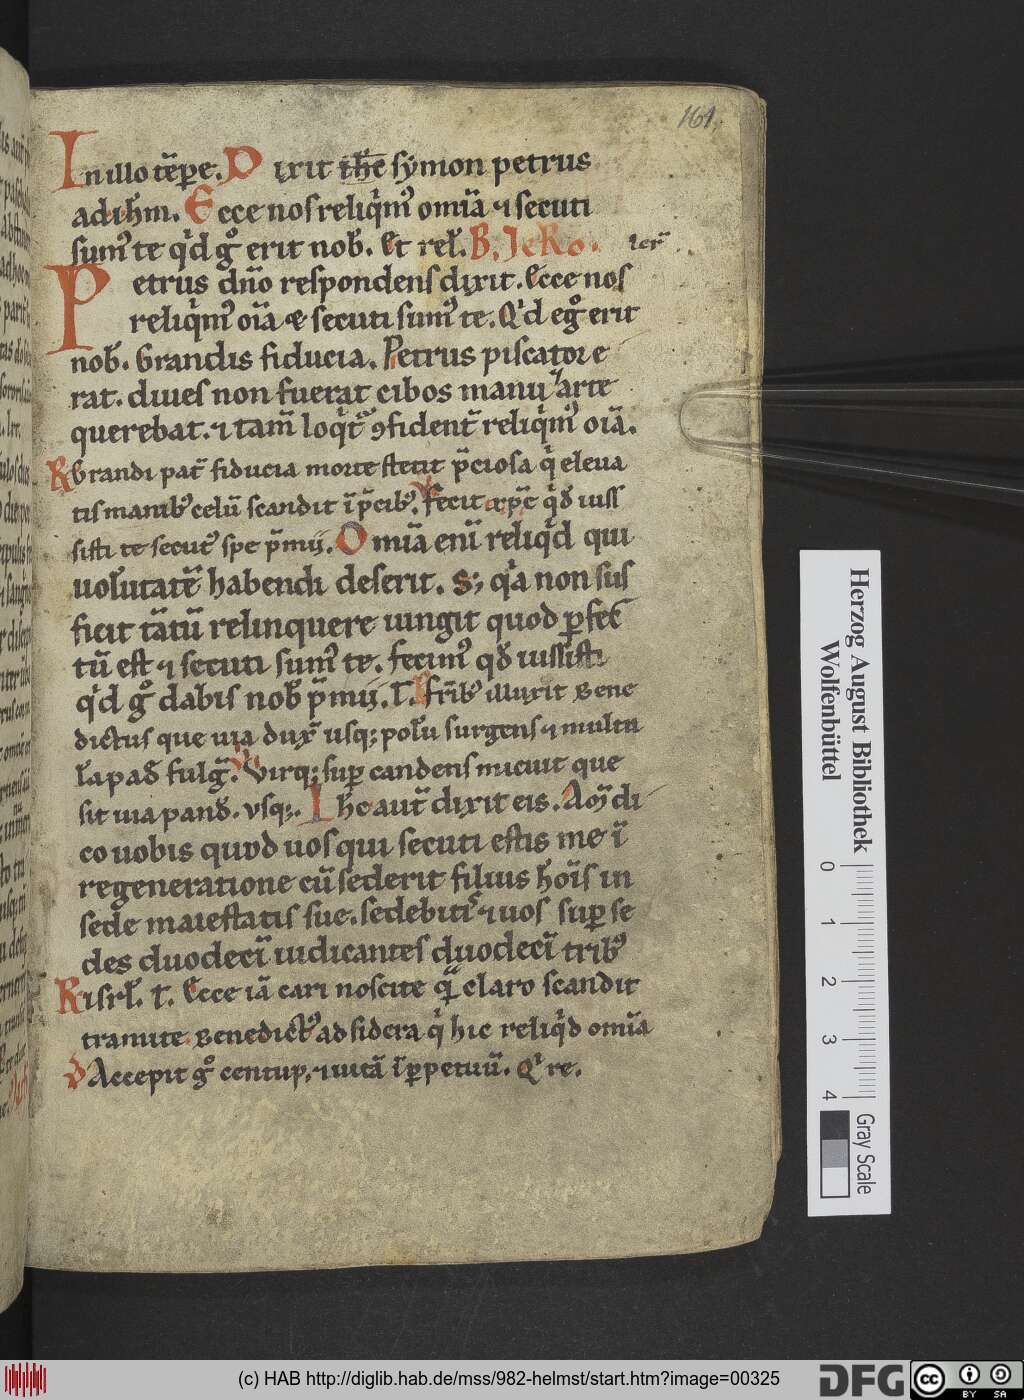 161.
In illo tēpe. Dixit ihc symon petrus
ad ihm. Ecce nos reliq̇m᷒ omīa ⁊ secuti
sum᷒ te qd g̊ erit nob̄. Et rel̄. B. Jero. Ier̄
Petrus dn̄o respondens dixit. Ecce nos
reliq̇m᷒ oīa & secuti sum᷒ te. Qd eg̊ erit
nob̄. Grandis fiducia. Petrus piscator e
rat. diues non fuerat cibos manu ⁊ arte
querebat. ⁊ tam̄ loq̇t᷑ ꝯfident̄ reliq̇m᷒ oīa.
R Grandi pat̄ fiducia morte stetit p̄ciosa q̇ eleua
tis manib᷒ celū scandit ī p̄cib᷒. V Fecit xp̄c qd iuss
sisti te secut᷒ spe p̄mij. Omīa enī reliqd qui
uolūtatē habendi deserit. S; qa non suf
ficit tātū relinquere iungit quod ꝑfec
tū est ⁊ secuti sum᷒ te. fecim᷒ qd iussisti
qd g̊ dabis nob̄ p̄mij. T. frīb᷒ illuxit Bene
dictus que uia dux̄ usq; polū surgens ⁊ multa
lāpad̄ fulḡ. V Virq; suꝑ candens micuit que
sit uia pand̄. Vsq;. Ihc aut̄ dixit eis. Am̄ di
co uobis quod uos qui secuti estis me ī
regeneratione cū sederit filius hōīs in
sede maiestatis sue. sedebitis ⁊ uos suꝑ se
des duodecī iudicantes duodecī trib᷒
R isrl̄. T. Ecce iā cari noscite qͣ claro scandit
tramite Benedict᷒ ad sidera q̇ hic reliqd omīa
V Accepit g̊ centup. ⁊ uitā īꝑpetuū. Q̇ re.
Herzog August Bibliothek
Wolfenbüttel
0 1 2 3 4
Gray Scale
(c) HAB http://diglib.hab.de/mss/982-helmst/start.htm?image=00325
DFG
cc BY SA